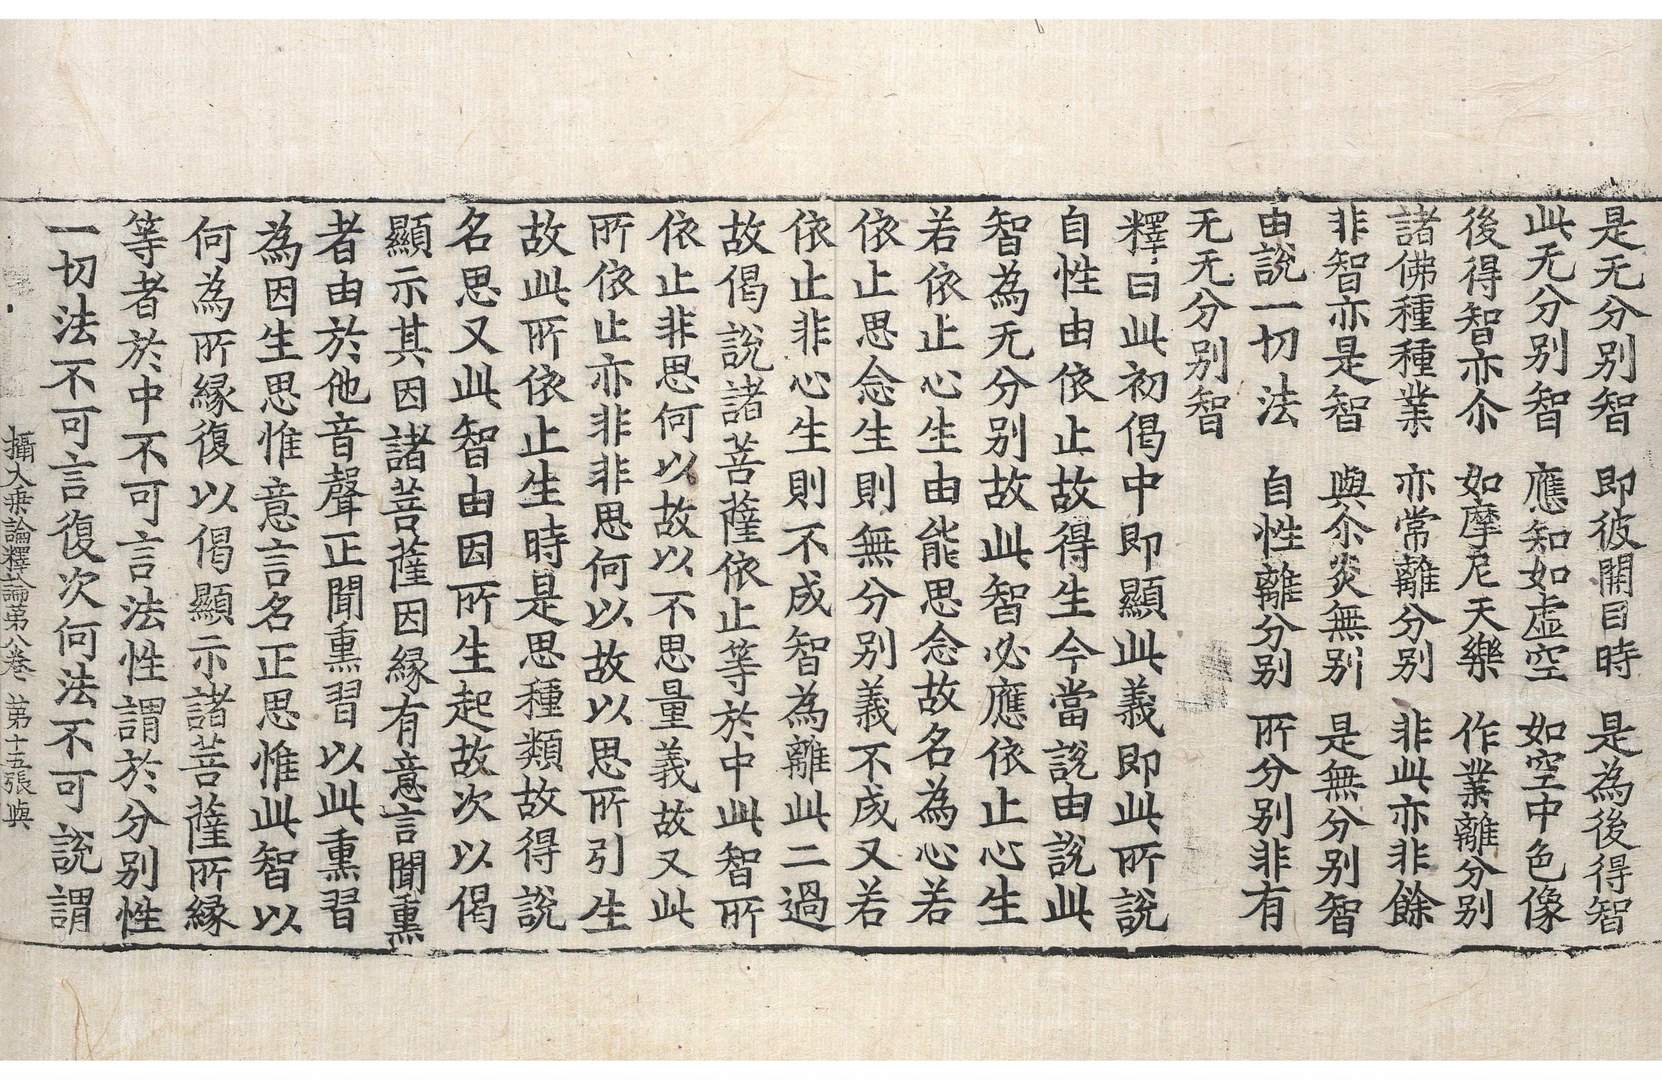 是无分别智　即彼開目時　是為後得智
此无分别智　應知如虛空　如空中色像
後得智亦尒　如摩尼天樂　作業離分别
諸佛種種業　亦常離分别　非此亦非餘
非智亦是智　與尒炎無别　是無分别智
由說一切法　自性離分别　所分别非有
无无分别智
釋曰此初偈中即顯此義即此所說
自性由依止故得生今當說由說此
智為无分别故此智必應依止心生
若依止心生由能思念故名為心若
依止思念生則無分别義不成又若
依止非心生則不成智為離此二過
故偈說諸菩薩依止等於中此智所
依止非思何以故以不思量義故又此
所依止亦非非思何以故以思所引生
故此所依止生時是思種類故得說
名思又此智由因所生起故次以偈
顯示其因諸菩薩因緣有意言聞熏
者由於他音聲正聞熏習以此熏習
為因生思惟意言名正思惟此智以
何為所緣復以偈顯示諸菩薩所緣
等者於中不可言法性謂於分别性
一切法不可言復次何法不可說謂
攝大乘論釋論第八卷　第十五張　與